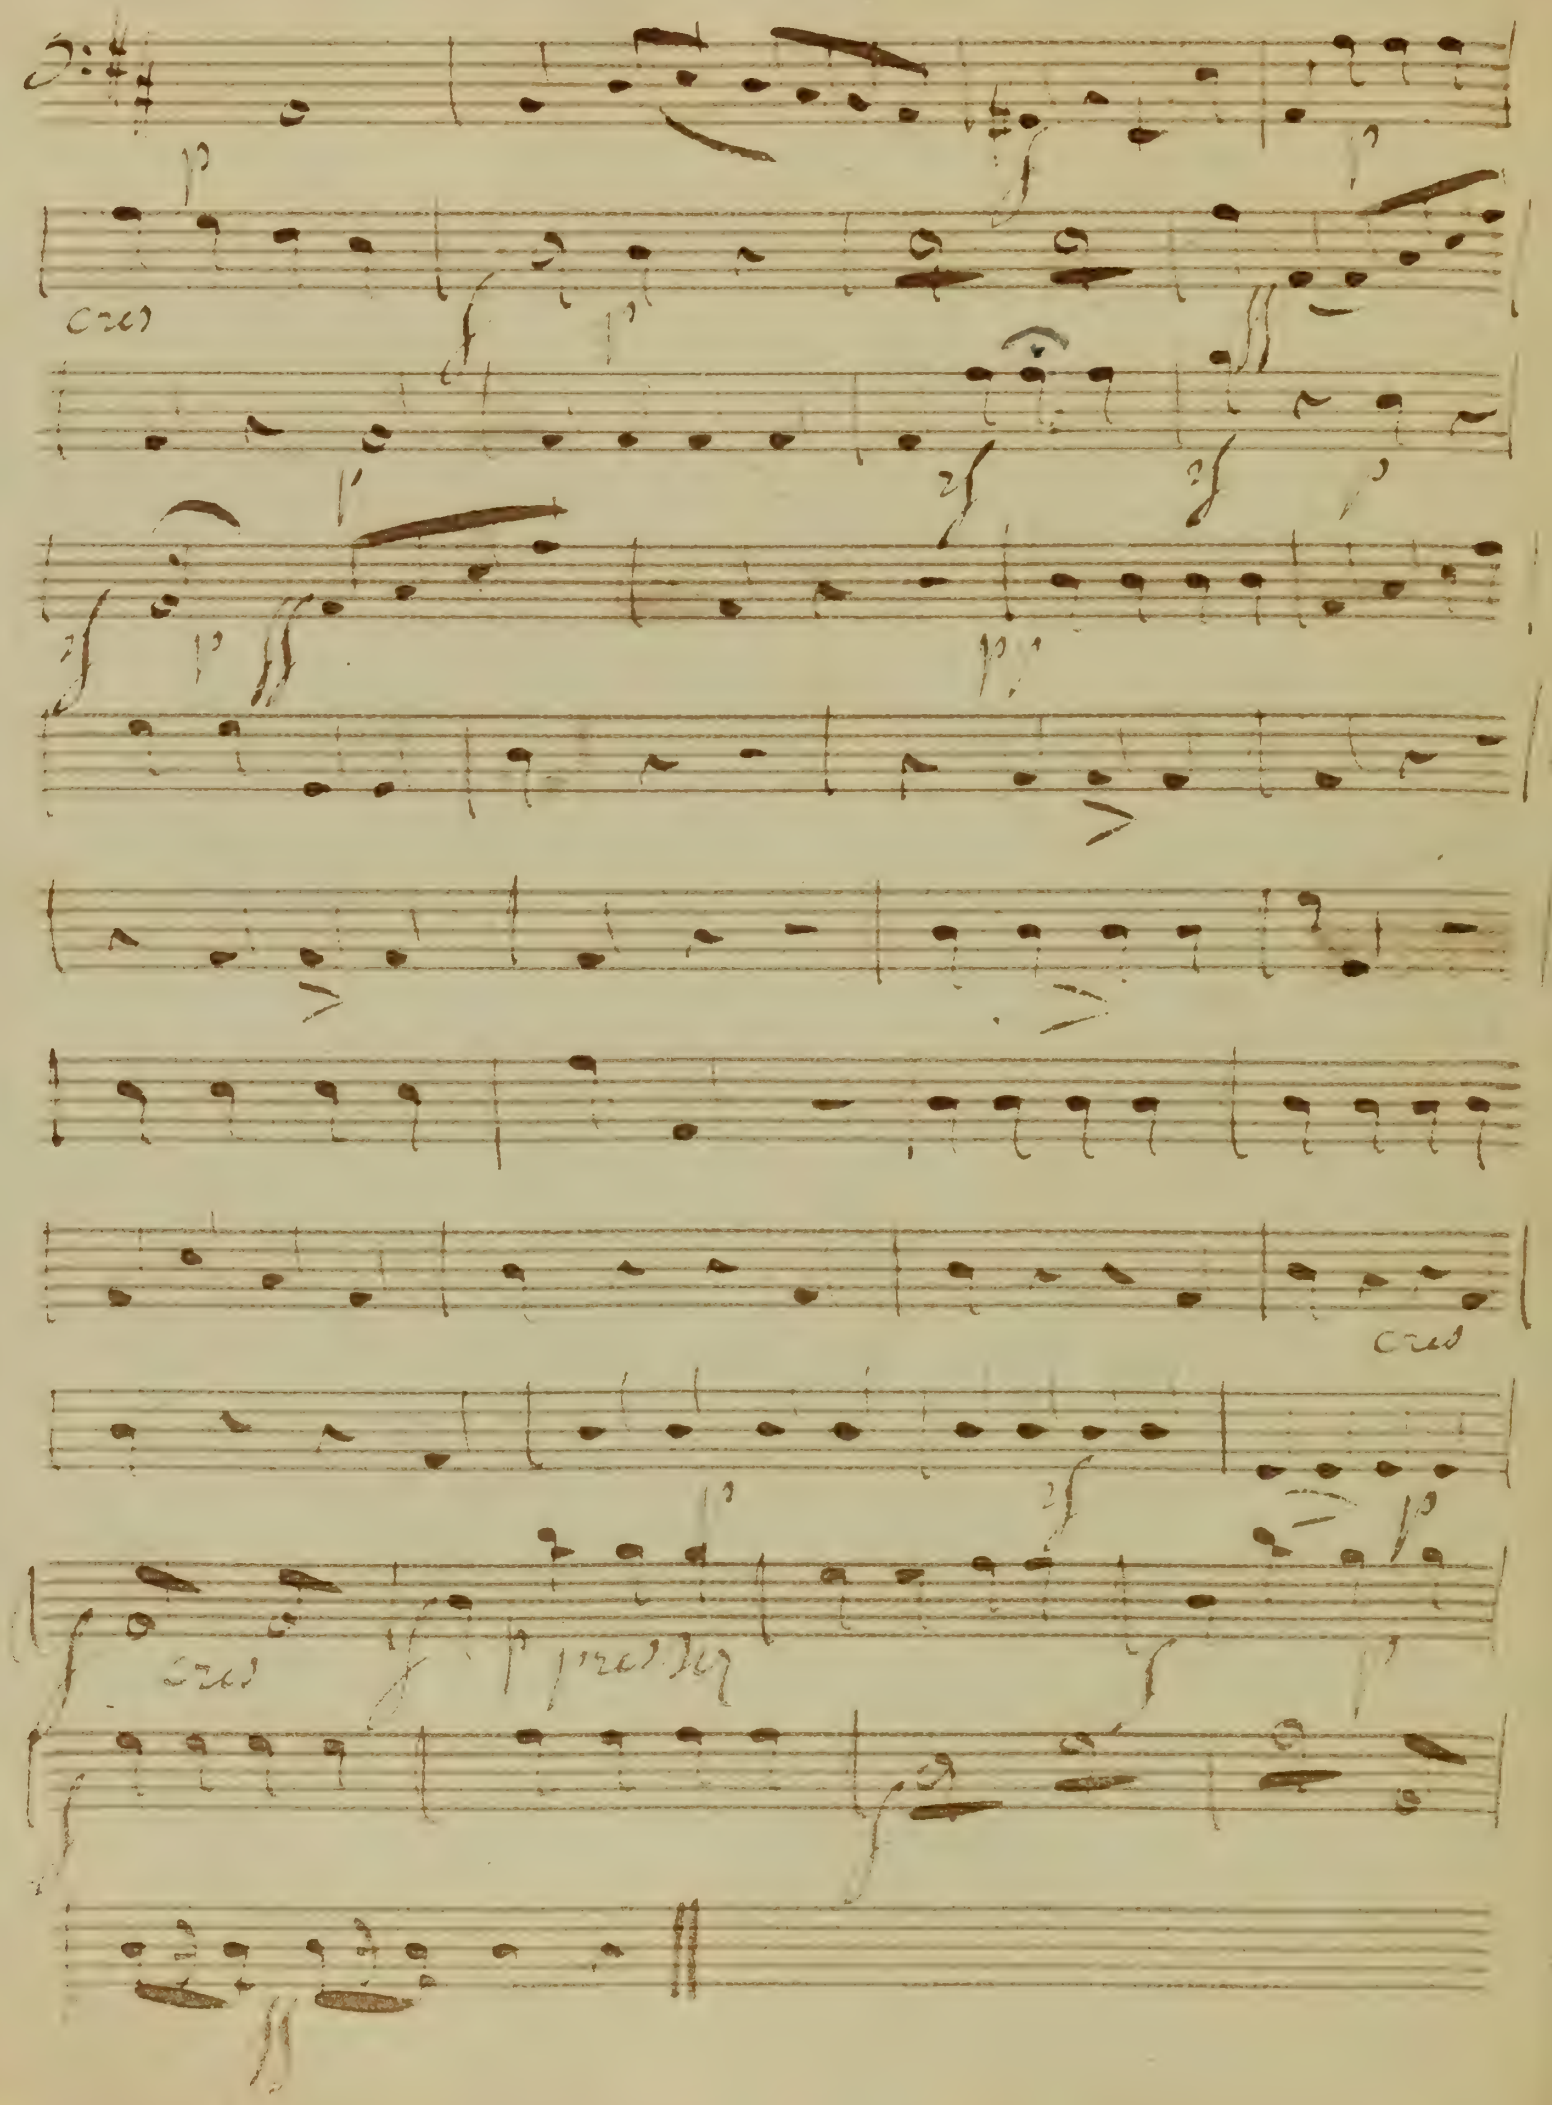 p f p
cres f p ff
p zf zf p
zf p ff pp
cres
p zf p
f cres f p f p
f f
ff